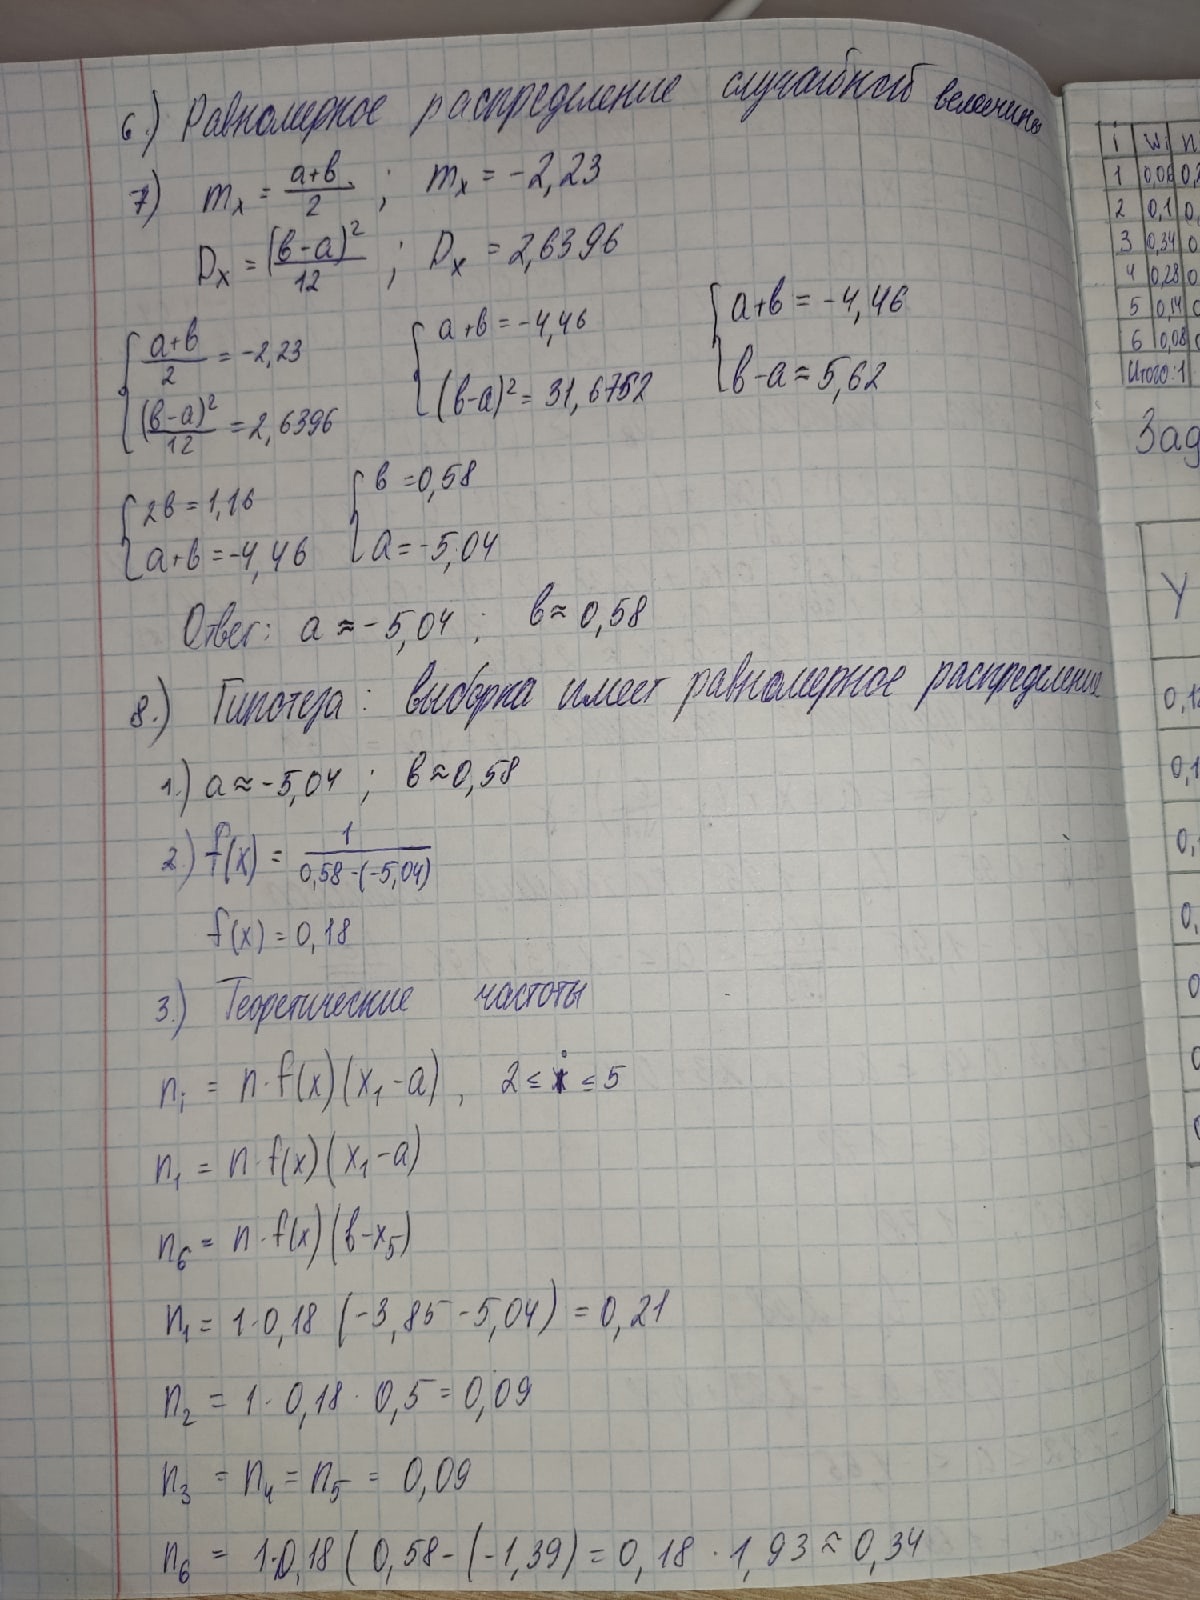 6.) Равномерное распределение случайной величины
7) mₓ = (a+b)/2 ; mₓ = -2,23
Dₓ = (b-a)²/12 ; Dₓ = 2,6396
{ (a+b)/2 = -2,23 { a+b = -4,46 { a+b = -4,46
{ (b-a)²/12 = 2,6396 { (b-a)² = 31,6752 { b-a ≈ 5,62
{ 2b = 1,16 { b = 0,58
{ a+b = -4,46 { a = -5,04
Ответ: a ≈ -5,04 ; b ≈ 0,58
8.) Гипотеза: выборка имеет равномерное распределение
1.) a ≈ -5,04 ; b ≈ 0,58
2.) f(x) = 1/(0,58-(-5,04))
f(x) = 0,18
3.) Теоретические частоты
nᵢ = n·f(x)(x₁-a), 2 ≤ i ≤ 5
n₁ = n·f(x)(x₁-a)
n₆ = n·f(x)(b-x₅)
n₁ = 1·0,18 (-3,85-5,04) = 0,21
n₂ = 1·0,18·0,5 = 0,09
n₃ = n₄ = n₅ = 0,09
n₆ = 1·0,18 (0,58-(-1,39) = 0,18·1,93 ≈ 0,34
i wi n
1 0,08 0,2
2 0,1 0,
3 0,34 0
4 0,28 0
5 0,14 0
6 0,08
Итого: 1
Зад
y
0,12
0,1
0,
0,
0
0